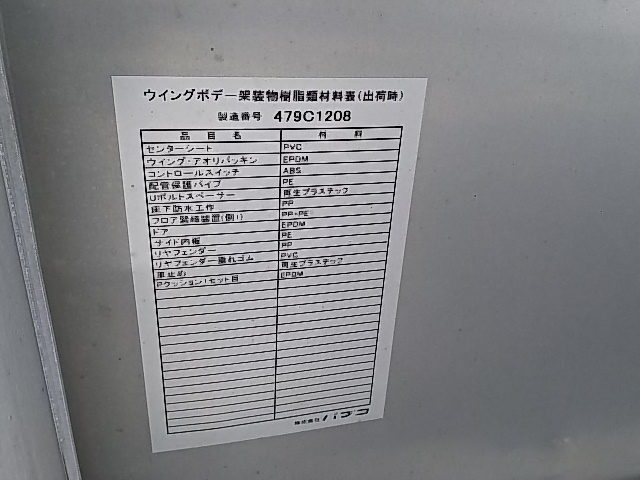 ウイングボデー架装物樹脂類材料表(出荷時)
製造番号 479C1208
品目名 材料
センターシート PVC
ウイング・アオリパッキン EPDM
コントロールスイッチ ABS
配管保護パイプ PE
Uボルトスペーサー 再生プラスチック
床下防水工作 PP
フロア緊締装置(側) PP・PE
ドア EPDM
サイド内幅 PE
リヤフェンダー PP
リヤフェンダー垂れゴム PVC
車止め 再生プラスチック
Pクッション1セット目 EPDM
株式会社パブコ